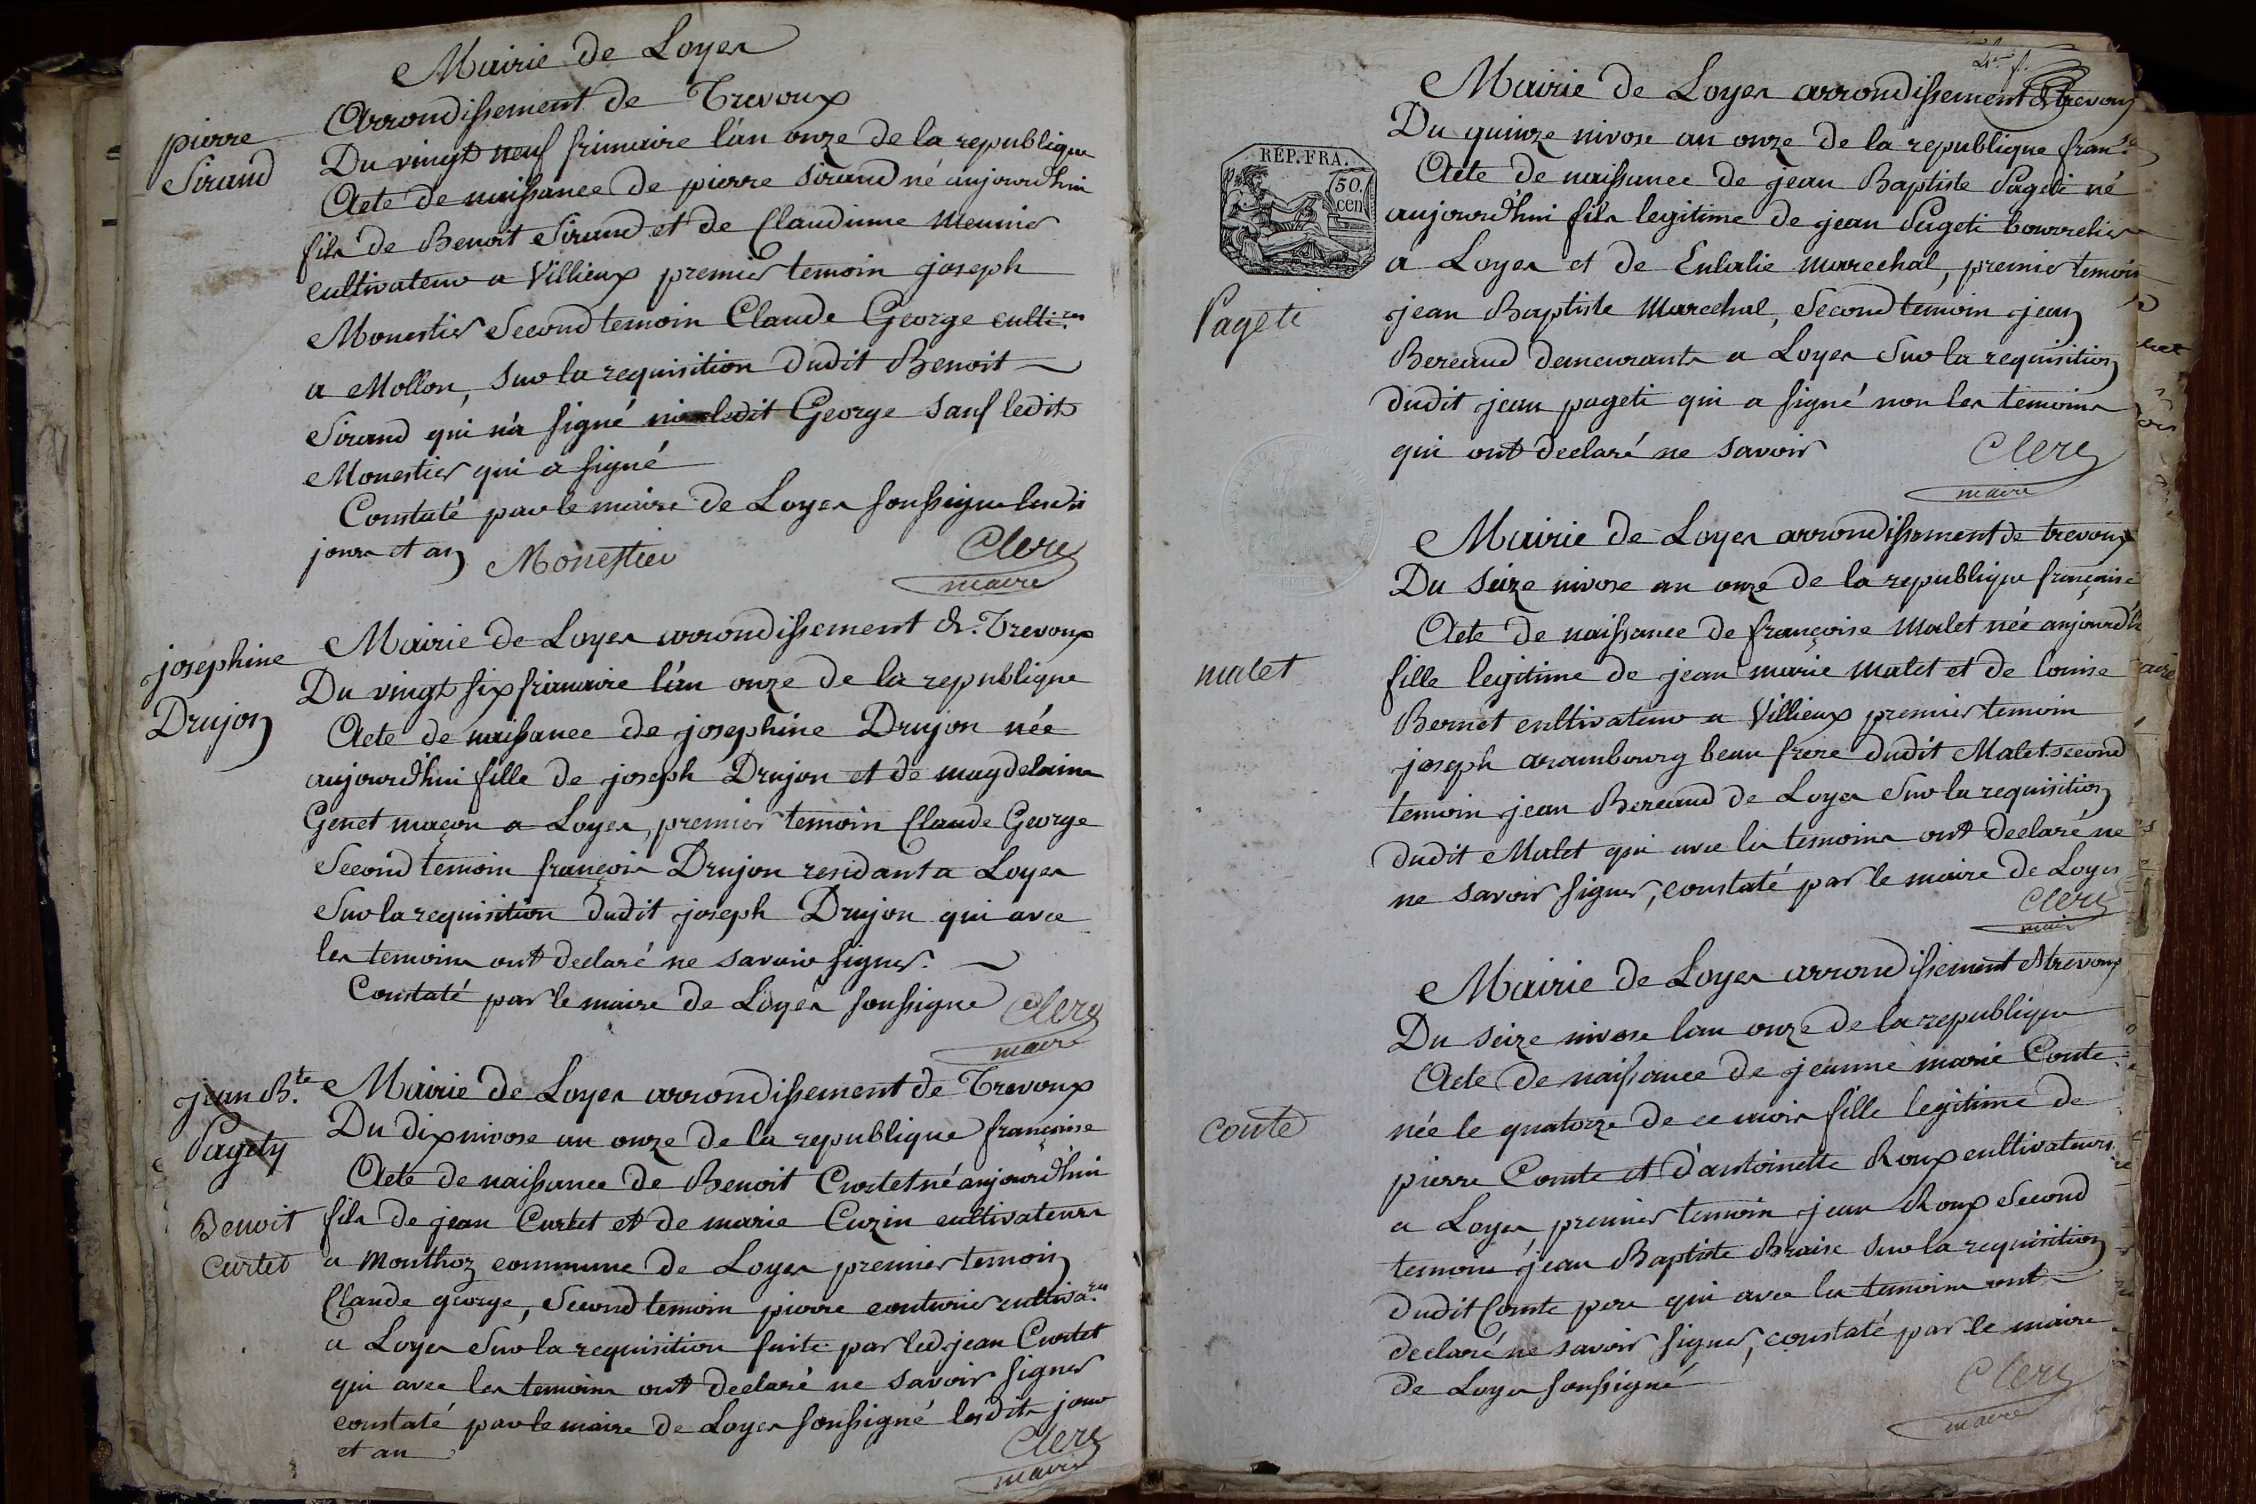 Mairie de Loyes
Arrondissement de Trevoux
pierre
Sirand
Du vingt neuf frimaire l'an onze de la republique
Acte de naissance de pierre sirand né aujourd'hui
fils de Benoit Sirand et de Claudinne meunier
cultivateur a Villieux premier temoin joseph
Monestier Second temoin Claude George culti.res
a Mollon, sur la requisition dudit Benoit
Sirand qui n'a signé ni ledit George sauf ledit
Monestier qui a signé
Constaté par le maire de Loyes soussigne lesdits
jours et an Monestier Clerc
maire
josephine
Drujon
Mairie de Loyes arrondissement de Trevoux
Du vingt six frimaire l'an onze de la republique
Acte de naissance de josephine Drujon née
aujourd'hui fille de joseph Drujon et de magdelaine
Genet maçon a Loyes, premier temoin Claude George
Second temoin françois Drujon residant a Loyes
Sur la requisition dudit joseph Drujon qui avec
les temoins ont declaré ne savoir signer.
Constaté par le maire de Loyes soussigne Clerc
maire
jean B.te
Pagety
Benoit
Curtet
Mairie de Loyes arrondissement de Trevoux
Du dix nivose an onze de la republique française
Acte de naissance de Benoit Curtet né aujourd'hui
fils de jean Curtet et de marie Cuzin cultivateurs
a Monthoz commune de Loyes premier temoin
Claude george, Second temoin pierre couturier cultiva.rs
a Loyes Sur la requisition faite par led. jean Curtet
qui avec les temoins ont declaré ne savoir signer
constaté par le maire de Loyes soussigné lesdits jour
et an Clerc
maire
Mairie de Loyes arrondissement de trevoux
REP. FRA.
50.
cen
Pageti
Du quinze nivose an onze de la republique fran.se
Acte de naissance de jean Baptiste Pageti né
aujourd'hui fils legitime de jean Pageti bourrelier
a Loyes et de Eulalie marechal, premier temoin
jean Baptiste marechal, Second temoin jean
Bereaud demeurants a Loyes Sur la requisition
dudit jean pageti qui a signé non les temoins
qui ont declaré ne savoir Clerc
maire
malet
Mairie de Loyes arrondissement de trevoux
Du seize nivose an onze de la republique française
Acte de naissance de françoise malet née aujourd'h
fille legitime de jean marie malet et de louise
Bernet cultivateur a Villieux premier temoin
joseph arambourg beau frere dudit Malet second
temoin jean Bereaud de Loyes Sur la requisition
dudit Malet qui avec les temoins ont declaré ne
ne savoir signer, constaté par le maire de Loyes
Clerc
maire
Conte
Mairie de Loyes arrondissement de trevoux
Du seize nivose l'an onze de la republique
Acte de naissance de jeanne marie Conte
née le quatorze de ce mois fille legitime de
pierre Comte et d'antoinette Roux cultivateurs
a Loyes, premier temoin jean Roux Second
temoin jean Baptiste Braise sur la requisition
dudit Comte pere qui avec les temoins ont
declaré ne savoir signer, constaté par le maire
de Loyes soussigné Clerc
maire